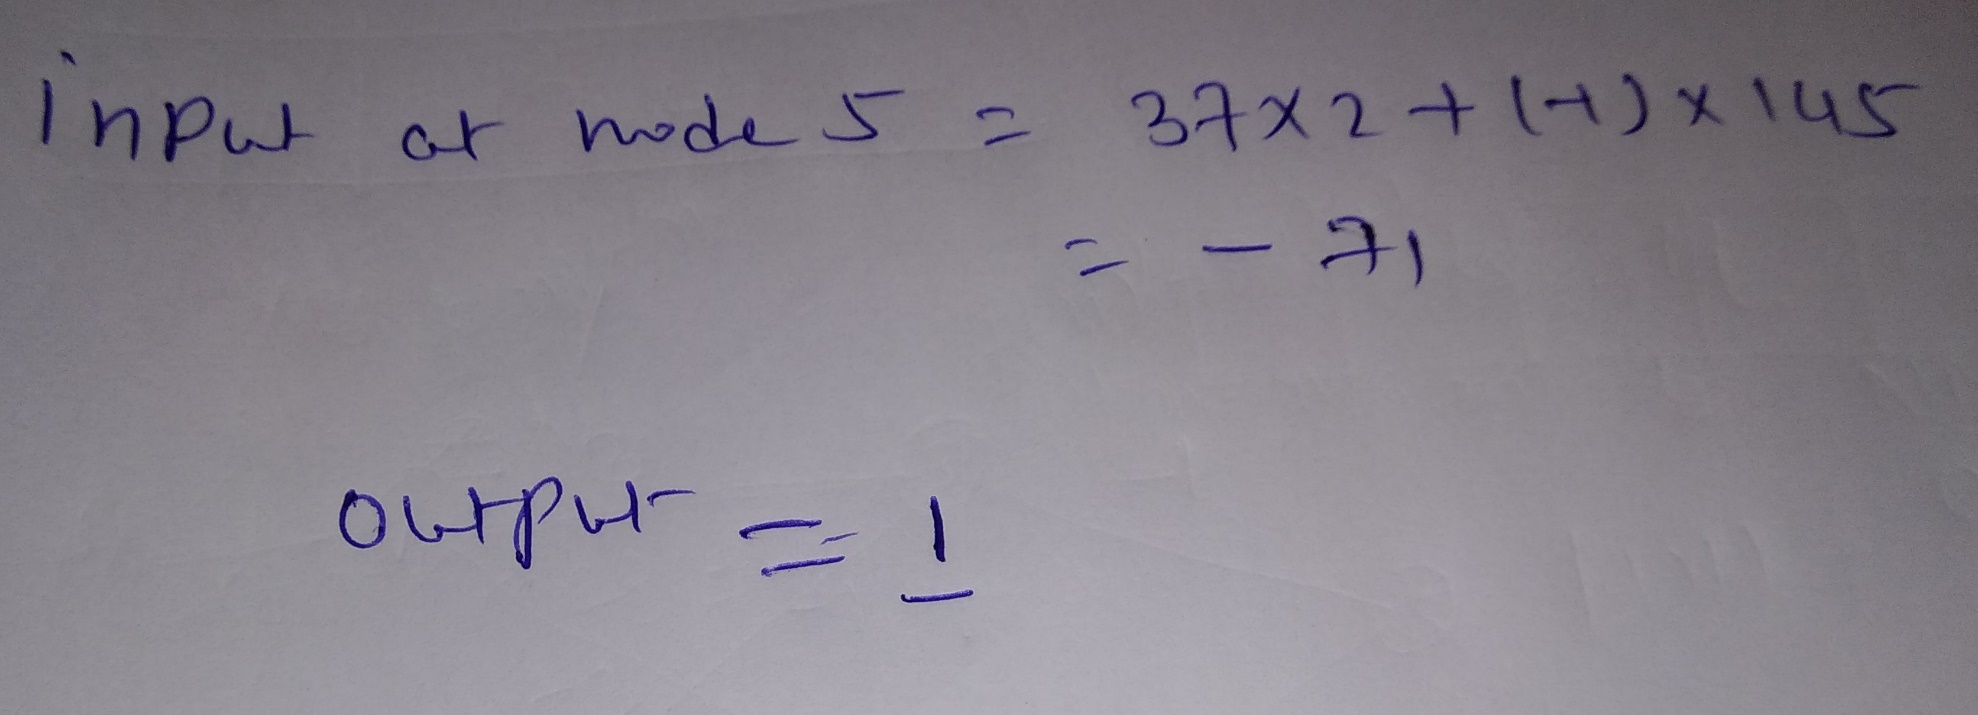 input at node 5 = 37x2 + (-1) x 145
= - 71
output = 1